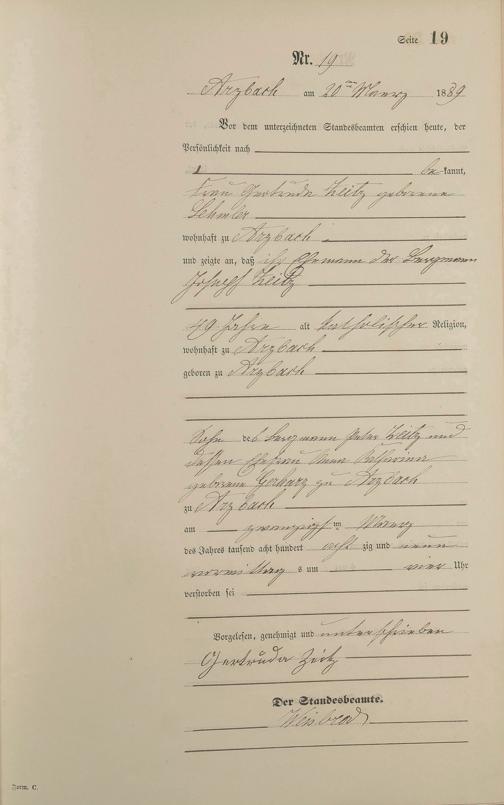 Seite 19
Nr. 19
Arzbach am 20ten Maerz 1889
Vor dem unterzeichneten Standesbeamten erschien heute, der
Persönlichkeit nach
be kannt,
Frau Gertruda Zeitz geborene
wohnhaft zu Arzbach
und zeigte an, daß ihr Ehemann der Bergmann
Joseph Zeitz
49 Jahre alt katholischer Religion,
wohnhaft zu Arzbach
geboren zu Arzbach
Sohn des Bergmann Peter Zeitz und
dessen Ehefrau Anna Katharina
geborene Gerharz zu Arzbach
zu Arzbach
am zwanzigsten Maerz
des Jahres tausend acht hundert acht zig und neun
vormittag s um vier Uhr
verstorben sei
Vorgelesen, genehmigt und unterschrieben
Gertruda Zeitz
Der Standesbeamte.
Weisbrod
Form. C.